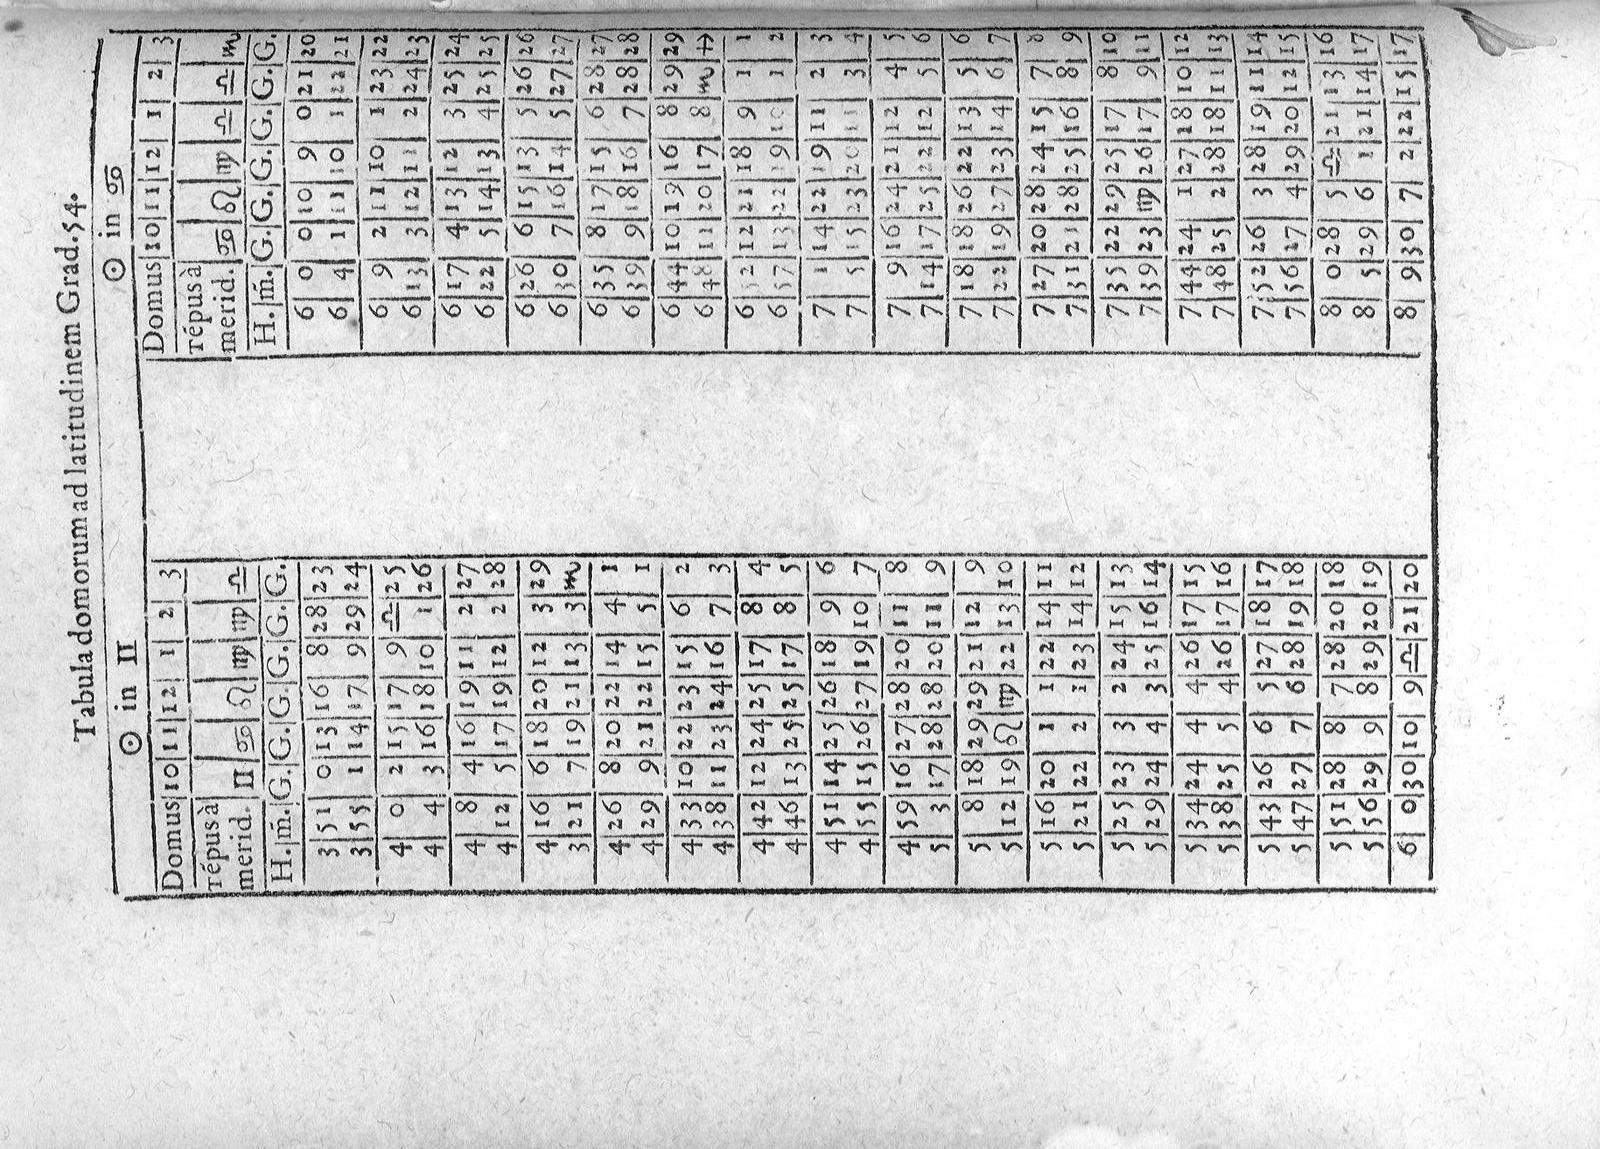 Tabula domorum ad latitudinem Grad. 54.
☉ in ♊
Domus | 10 | 11 | 12 | 1 | 2 | 3
tēpus à merid. | ♊ | ♋ | ♌ | ♍ | ♍ | ♎
H. | m̄. | G. | G. | G. | G. | G. | G.
3 51 0 13 16 8 28 23
3 55 1 14 17 9 29 24
4 0 2 15 17 9 ♎ 25
4 4 3 16 18 10 1 26
4 8 4 16 19 11 2 27
4 12 5 17 19 12 2 28
4 16 6 18 20 12 3 29
3 21 7 19 21 13 3 ♏
4 26 8 20 22 14 4 1
4 29 9 21 22 15 5 1
4 33 10 22 23 15 6 2
4 38 11 23 24 16 7 3
4 42 12 24 25 17 8 4
4 46 13 25 25 17 8 5
4 51 14 25 26 18 9 6
4 55 15 26 27 19 10 7
4 59 16 27 28 20 11 8
5 3 17 28 28 20 11 9
5 8 18 29 29 21 12 9
5 12 19 ♌ ♍ 22 13 10
5 16 20 1 1 22 14 11
5 21 22 2 1 23 14 12
5 25 23 3 2 24 15 13
5 29 24 4 3 25 16 14
5 34 24 4 4 26 17 15
5 38 25 5 4 26 17 16
5 43 26 6 5 27 18 17
5 47 27 7 6 28 19 18
5 51 28 8 7 28 20 18
5 56 29 9 8 29 20 19
6 0 30 10 9 ♎ 21 20
☉ in ♋
Domus | 10 | 11 | 12 | 1 | 2 | 3
tēpus à merid. | ♋ | ♌ | ♍ | ♎ | ♎ | ♏
H. | m̄. | G. | G. | G. | G. | G. | G.
6 0 0 10 9 0 21 20
6 4 1 11 10 1 22 21
6 9 2 11 10 1 23 22
6 13 3 12 11 2 24 23
6 17 4 13 12 3 25 24
6 22 5 14 13 4 25 25
6 26 6 15 13 5 26 26
6 30 7 16 14 5 27 27
6 35 8 17 15 6 28 27
6 39 9 18 16 7 28 28
6 44 10 19 16 8 29 29
6 48 11 20 17 8 ♏ ♐
6 52 12 21 18 9 1 1
6 57 13 22 19 10 1 2
7 1 14 22 19 11 2 3
7 5 15 23 20 11 3 4
7 9 16 24 21 12 4 5
7 14 17 25 22 12 5 6
7 18 18 26 22 13 5 6
7 22 19 27 23 14 6 7
7 27 20 28 24 15 7 8
7 31 21 28 25 16 8 9
7 35 22 29 25 17 8 10
7 39 23 ♍ 26 17 9 11
7 44 24 1 27 18 10 12
7 48 25 2 28 18 11 13
7 52 26 3 28 19 11 14
7 56 27 4 29 20 12 15
8 0 28 5 ♎ 21 13 16
8 5 29 6 1 21 14 17
8 9 30 7 2 22 15 17